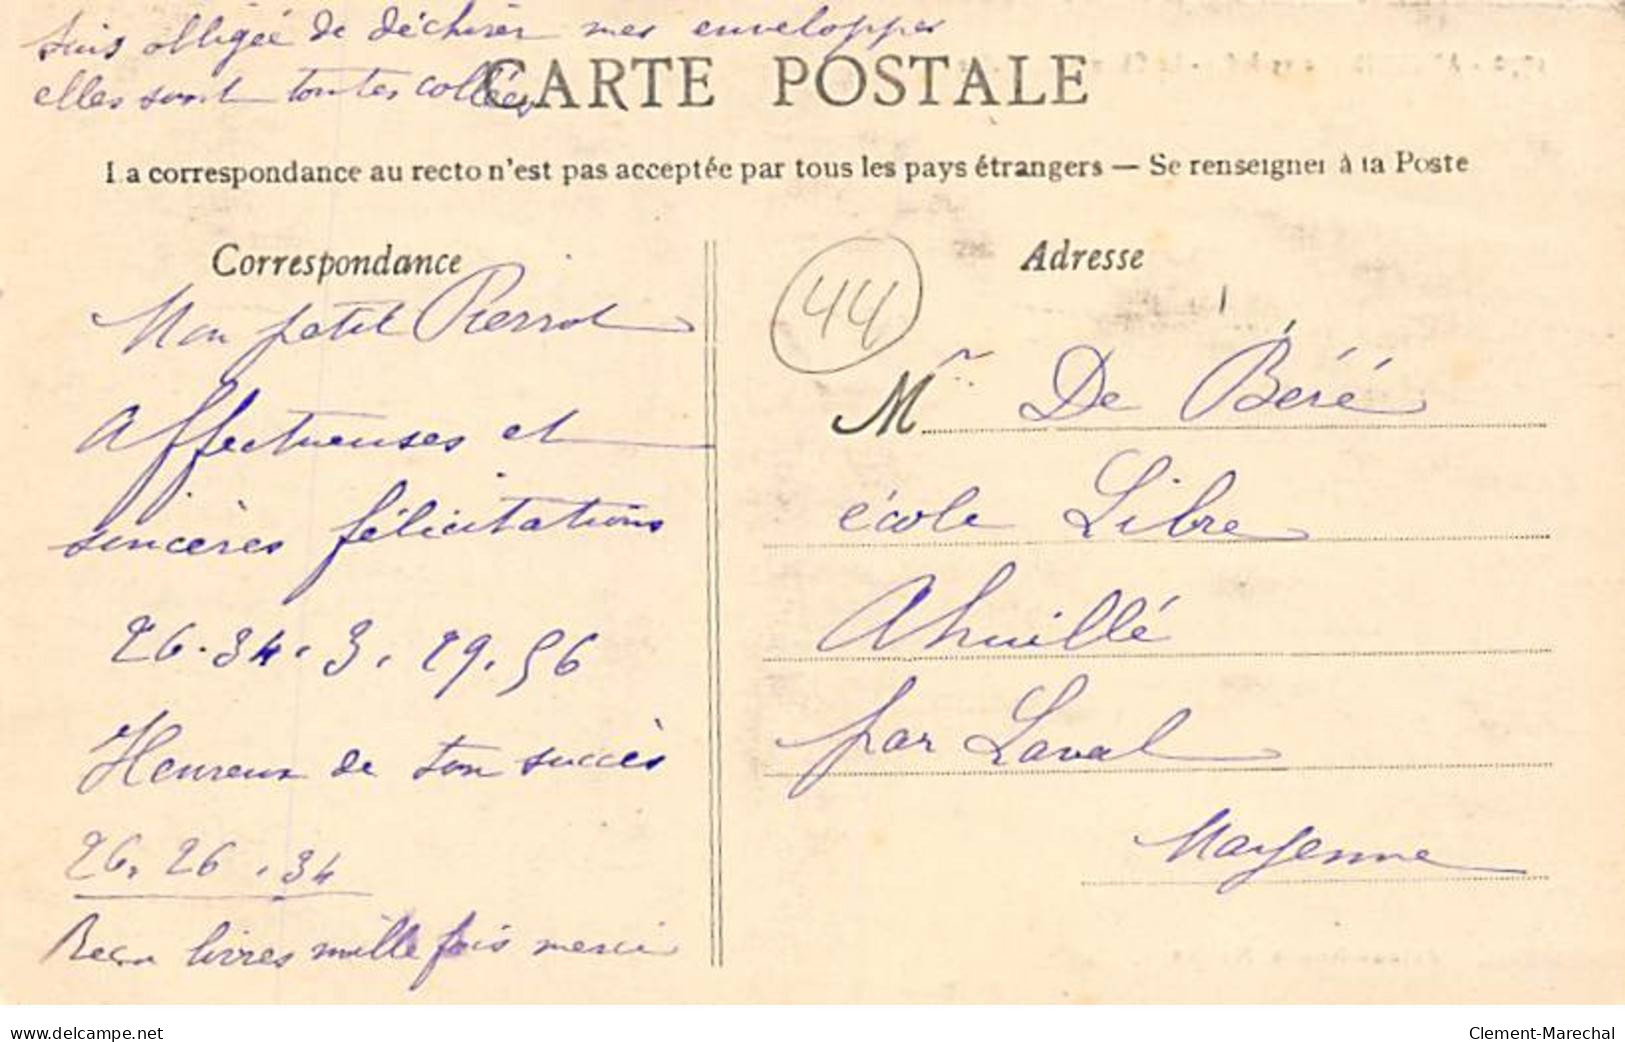 suis obligée de déchirer mes enveloppes
elles sont toutes collées
CARTE POSTALE
La correspondance au recto n'est pas acceptée par tous les pays étrangers — Se renseigner à la Poste
Correspondance
Mon petit Pierrot
Affectueuses et
sincères félicitations
26. 34. 3. 29. 56
Heureux de ton succès
26. 26. 34
Reçu livres mille fois merci
44
Adresse
M r De Béré
école Libre
Ahuillé
par Laval
Mayenne
www.delcampe.net
Clement-Marechal